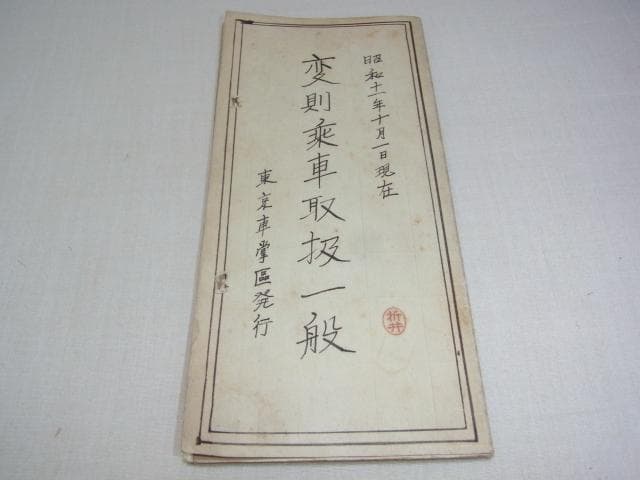 昭和十一年十月一日現在
変則乗車取扱一般
東京車掌區発行
折井